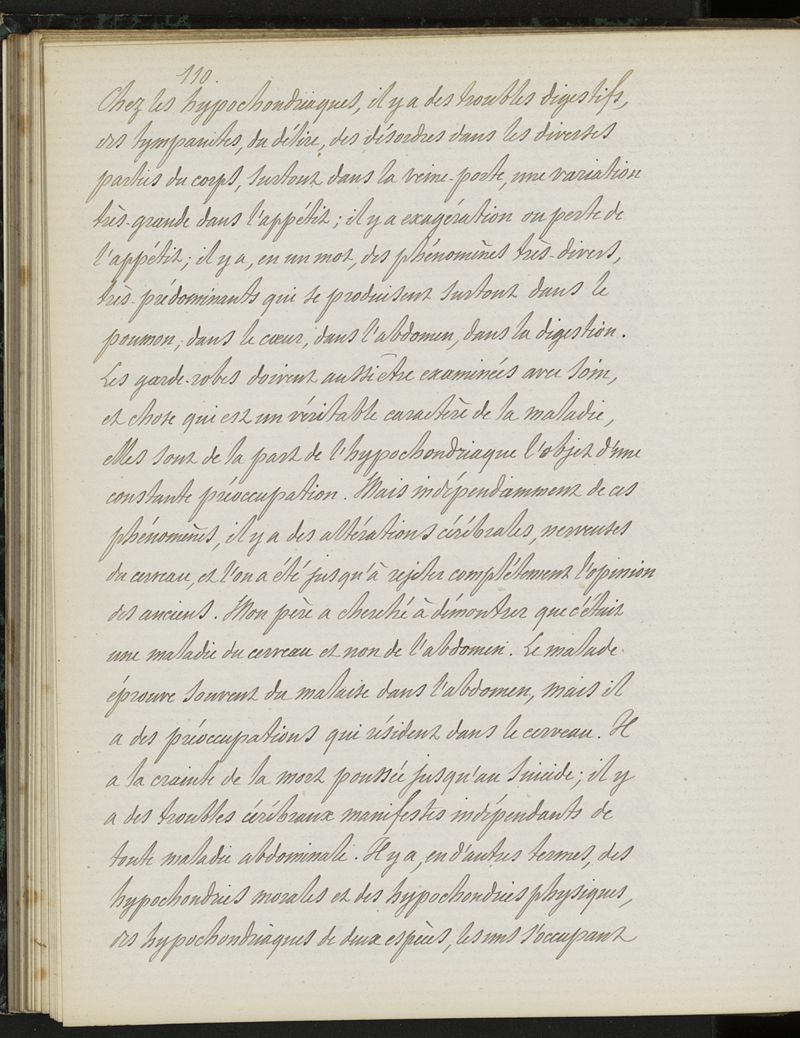 110.
Chez les hypochondriaques, il y a des troubles digestifs,
des tympanites, du délire, des désordres dans les diverses
parties du corps, surtout dans la veine-porte, une variation
très-grande dans l'appétit ; il y a exagération ou perte de
l'appétit ; il y a, en un mot, des phénomènes très-divers,
très-prédominants qui se produisent surtout dans le
poumon, dans le cœur, dans l'abdomen, dans la digestion.
Les garde-robes doivent aussi être examinées avec soin,
et chose qui est un véritable caractère de la maladie,
elles sont de la part de l'hypochondriaque l'objet d'une
constante préoccupation. Mais indépendamment de ces
phénomènes, il y a des altérations cérébrales, nerveuses
du cerveau, et l'on a été jusqu'à rejeter complétement l'opinion
des anciens. Mon père a cherché à démontrer que c'était
une maladie du cerveau et non de l'abdomen. Le malade
éprouve souvent du malaise dans l'abdomen, mais il
a des préoccupations qui résident dans le cerveau. Il
a la crainte de la mort poussée jusqu'au suicide ; il y
a des troubles cérébraux manifestes indépendants de
toute maladie abdominale. Il y a, en d'autres termes, des
hypochondries morales et des hypochondries physiques,
des hypochondriaques de deux espèces, les uns s'occupant